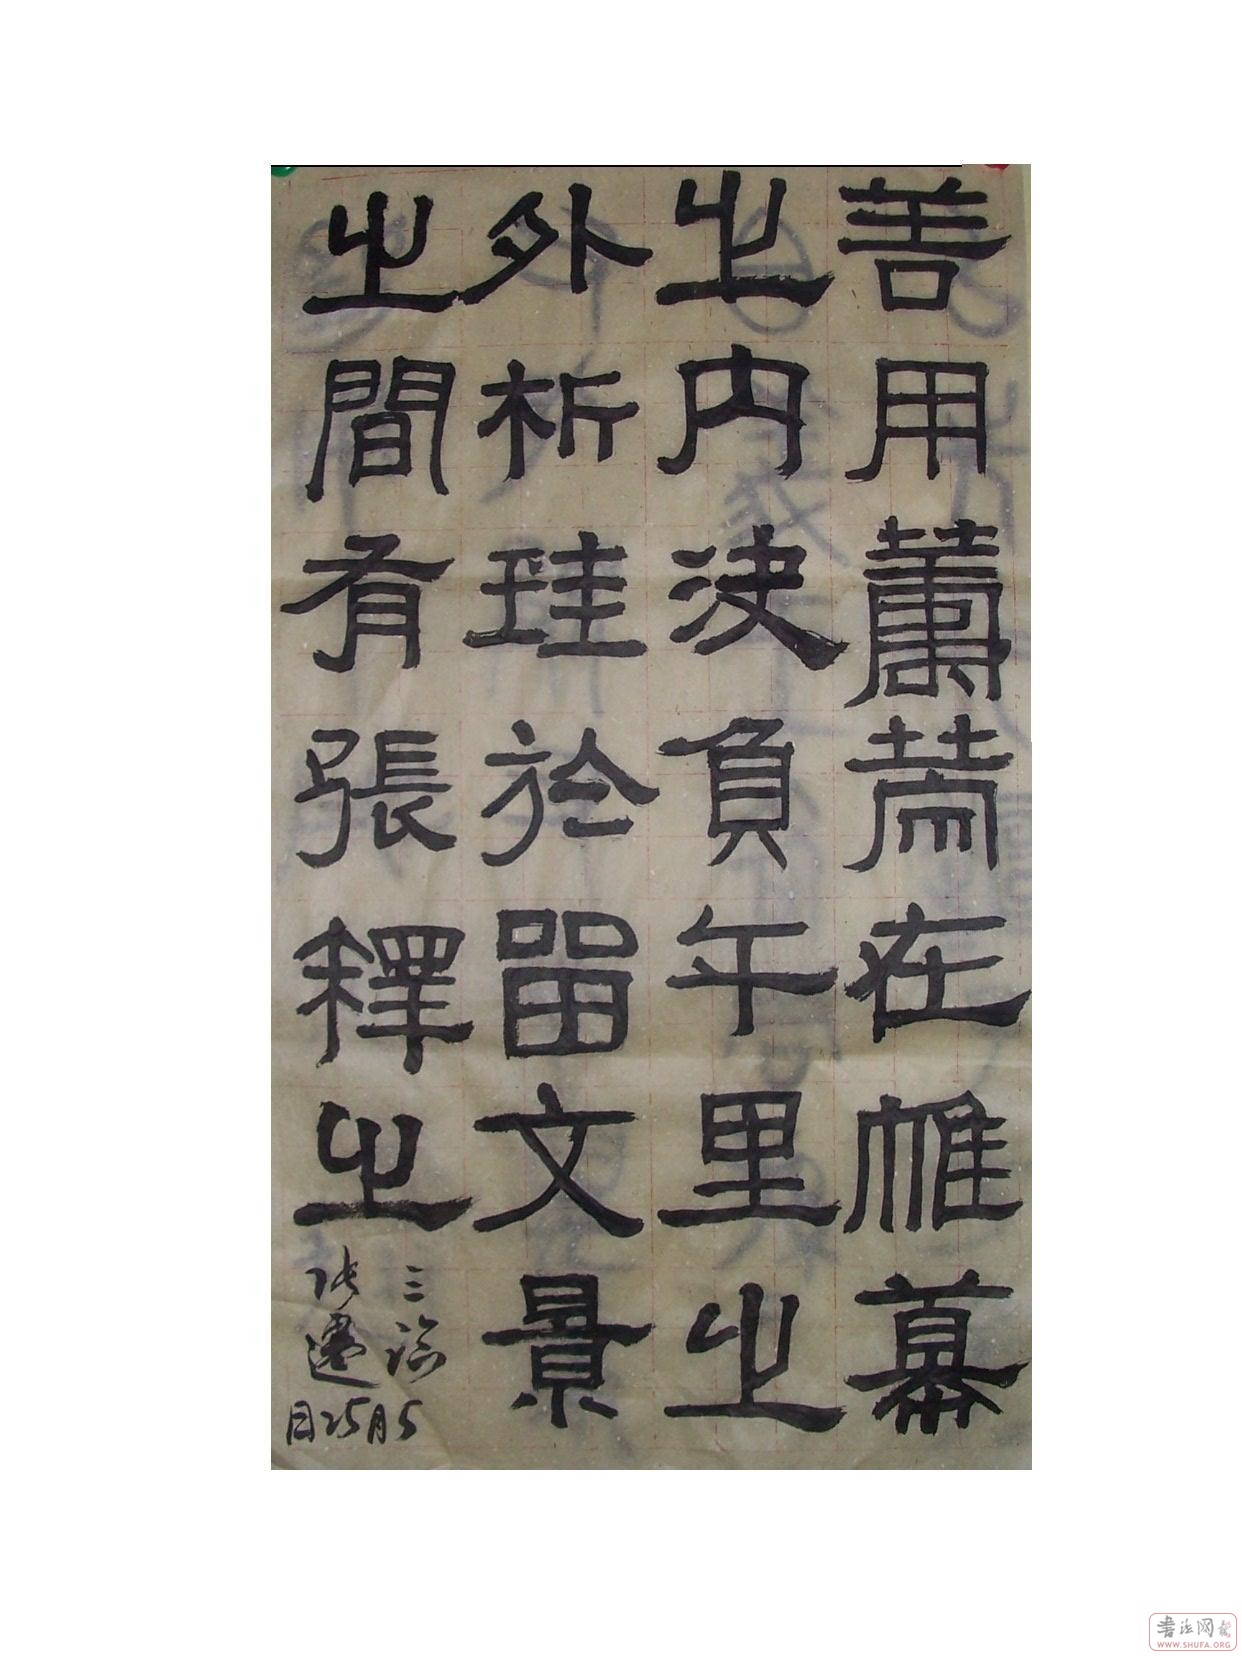 善用籌策在帷幕
之内決負千里之
外析珪於留文景
之間有張釋之
三临
张迁
5月25日
书法网
WWW.SHUFA.ORG